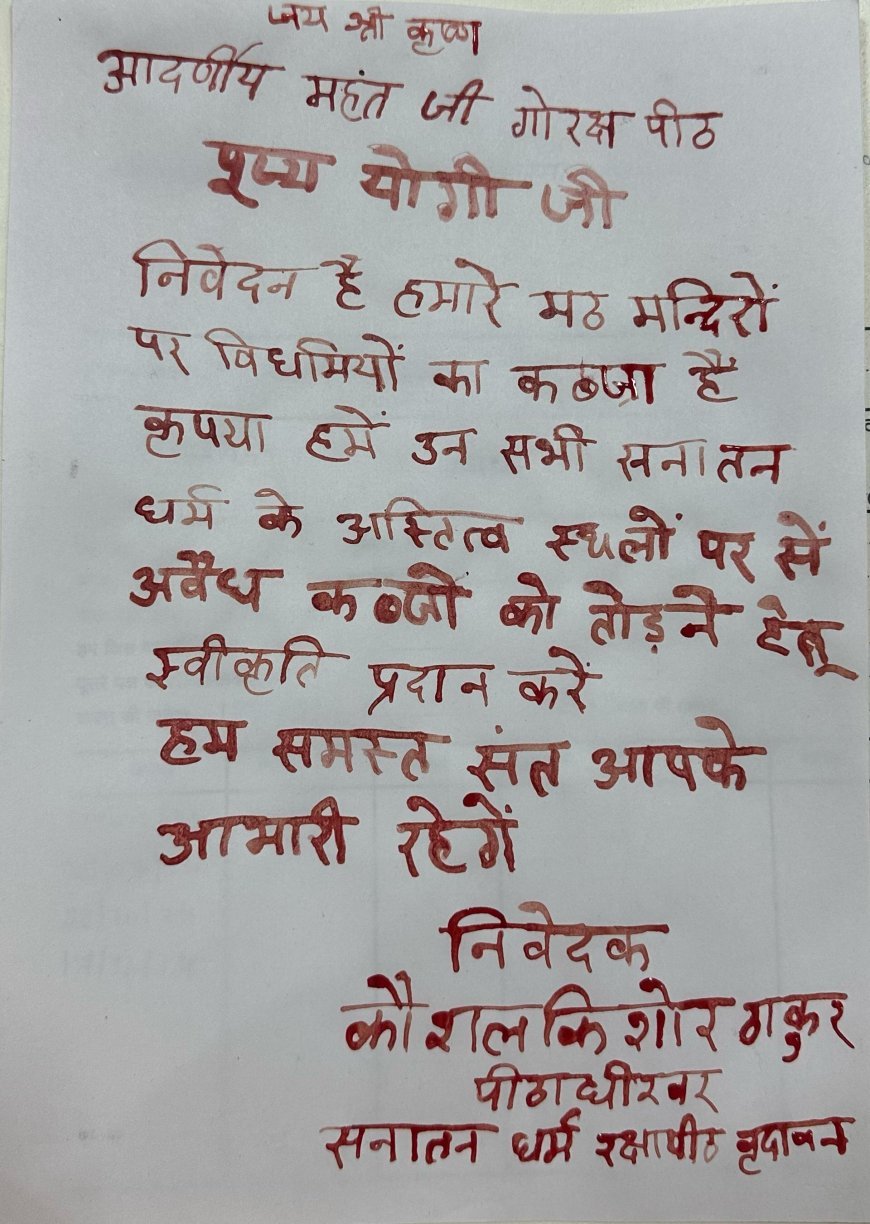 जय श्री कृष्ण
आदर्णीय महंत जी गोरक्ष पीठ
पूज्य योगी जी
निवेदन है हमारे मठ मन्दिरों
पर विधर्मियों का कब्जा है
कृपया हमें उन सभी सनातन
धर्म के अस्तित्व स्थलों पर सें
अवैध कब्जों को तोड़ने हेतू
स्वीकृति प्रदान करें
हम समस्त संत आपके
आभारी रहेगें
निवेदक
कौशल किशोर ठाकुर
पीठाधीश्वर
सनातन धर्म रक्षापीठ वृंदावन